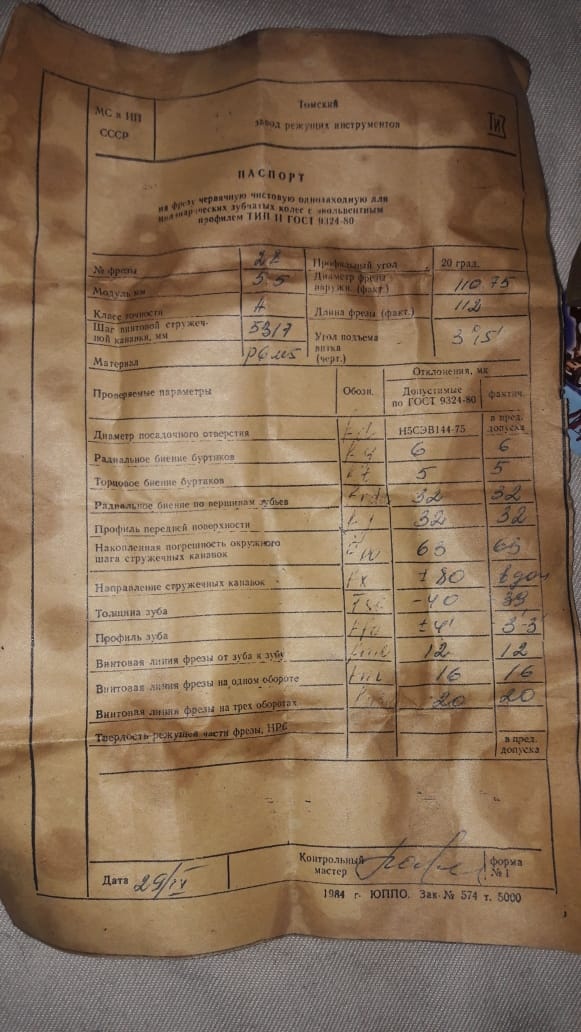 МС и ИП
СССР
Томский
завод режущих инструментов
ТИЗ
ПАСПОРТ
на фрезу червячную чистовую однозаходную для
цилиндрических зубчатых колес с эвольвентным
профилем ТИП II ГОСТ 9324-80
№ фрезы 22 Профильный угол 20 град.
Модуль мм 5.5 Диаметр фрезы наружн. (факт.) 110.75
Класс точности А Длина фрезы (факт.) 112
Шаг винтовой стружечной канавки, мм 5317 Угол подъема витка (черт.) 3°15'
Материал Р6М5
Проверяемые параметры Обозн. Отклонения, мк
Допустимые по ГОСТ 9324-80 фактич.
Диаметр посадочного отверстия Н5СЭВ144-75 в пред. допуска
Радиальное биение буртиков 6 6
Торцовое биение буртиков 5 5
Радиальное биение по вершинам зубьев 32 32
Профиль передней поверхности 32 32
Накопленная погрешность окружного шага стружечных канавок 63 63
Направление стружечных канавок ±80 в доп
Толщина зуба -40 39
Профиль зуба
Винтовая линия фрезы от зуба к зубу 12 12
Винтовая линия фрезы на одном обороте 16 16
Винтовая линия фрезы на трех оборотах 20 20
Твердость режущей части фрезы, НРС в пред. допуска
Дата 29/IV Контрольный мастер форма № 1
1984 г. ЮППО. Зак. № 574 т. 5000